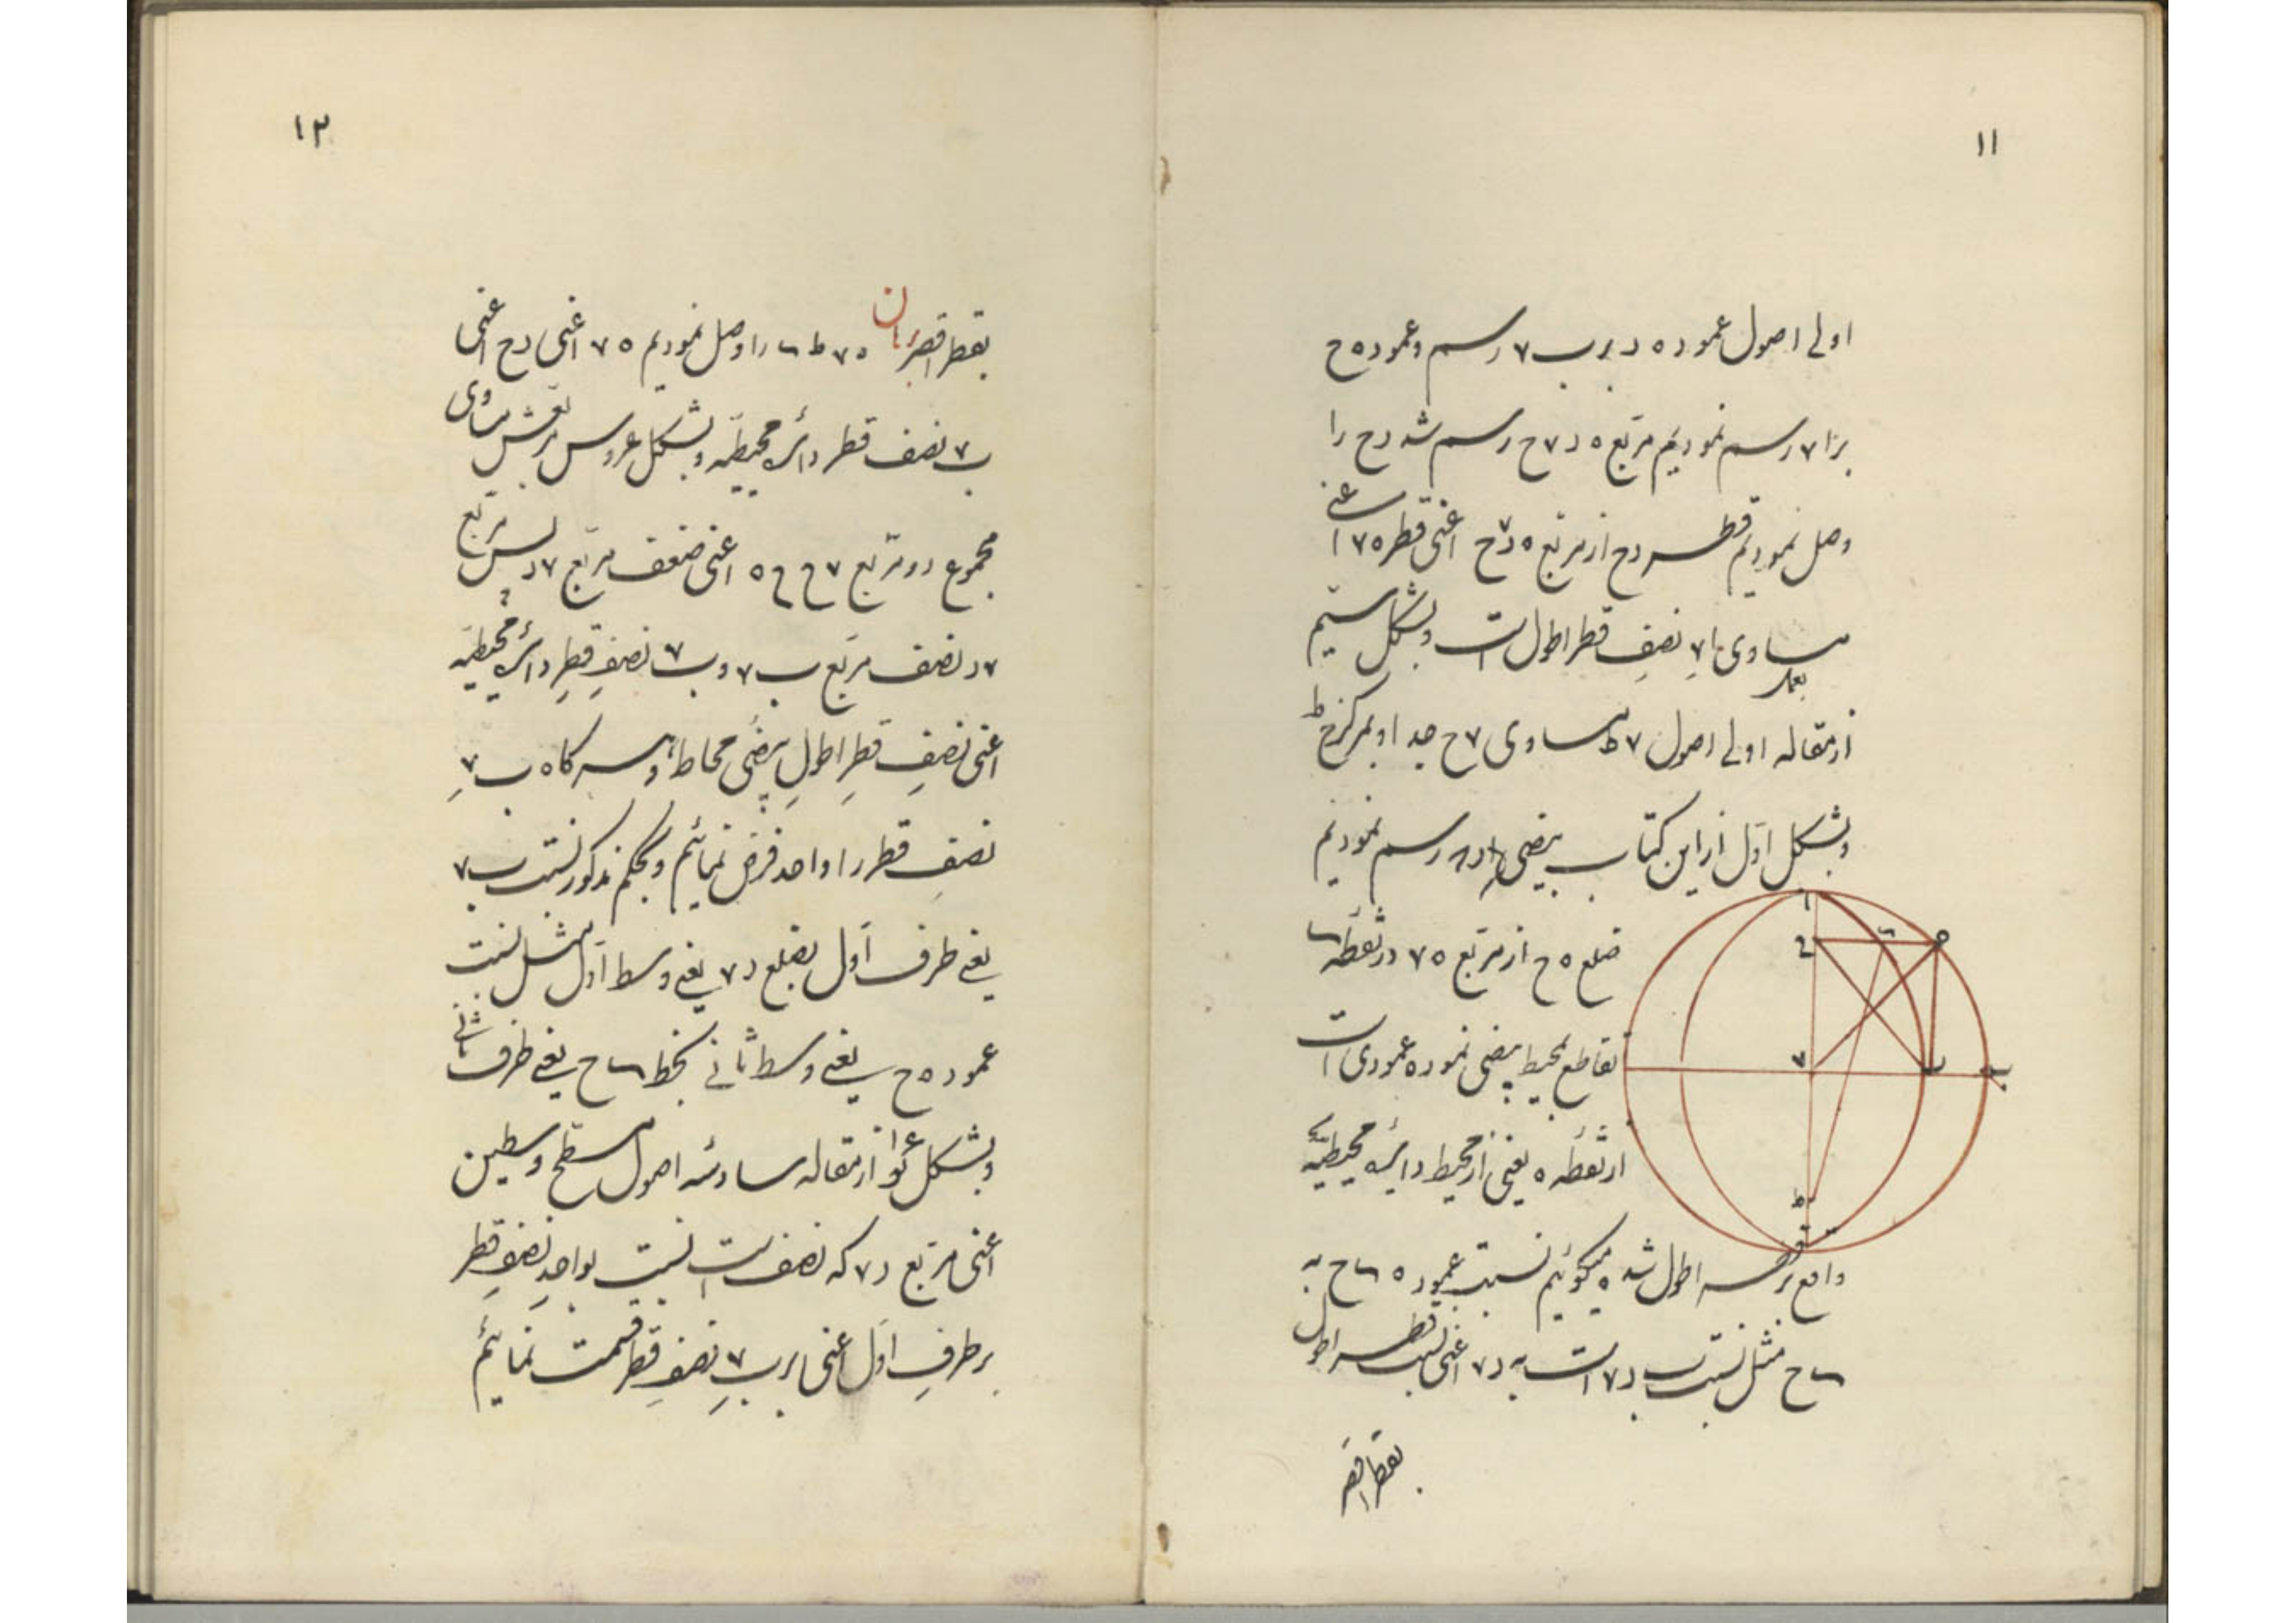 ۱۱
اولی اصول عمود ه د بر ب ۷ رسم و عمود ه ح
بر ا ۷ رسم نمودیم مربع ه د ۷ ح رسم شد د ح را
وصل نمودیم قطر د ح از مربع ه د ۷ ح اعنی قطر ه ۷ اعنی
مساوی ا ۷ نصف قطر اطول است و بشکل سیم
از مقاله اولی اصول ۷ ط مساوی ۷ ح جدا و بمرکز ح ط
و بشکل اول از این کتاب بیضی رسم نمودیم
ضلع ه ح از مربع ه ۷ در نقطه
تقاطع محیط بیضی نموده عمودی است
از نقطه ه یعنی از محیط دایره محیطیه
واقع بر قطر اطول شده میگوئیم نسبت عمود ه ح به
ح مثل نسبت ب ۷ است به د ۷ اعنی نسبت قطر اطول
بقطر اقصر
۱۲
بقطر اقصر برهان ه ۷ ط را وصل نمودیم ه ۷ اعنی د ح اعنی
ب ۷ نصف قطر دائره محیطیه و بشکل عروس مربعش مساوی
مجموع دو مربع ۷ ح ح ه اعنی ضعف مربع ۷ د پس مربع
۷ د نصف مربع ب ۷ و ب ۷ نصف قطر دائره محیطیه
اعنی نصف قطر اطول بیضی محاط، و هرگاه ب ۷
نصف قطر را واحد فرض نمائیم و بحکم مذکور نسبت ب ۷
یعنی طرف اول بضلع د ۷ یعنی وسط اول مثل نسبت
عمود ه ح یعنی وسط ثانی بخط ح یعنی طرف ثانی
و بشکل از مقاله سادسه اصول مسطح وسطین
اعنی مربع د ۷ که نصف است نسبت بواحد نصف قطر
بر طرف اول اعنی بر ب ۷ نصف قطر قسمت نمائیم